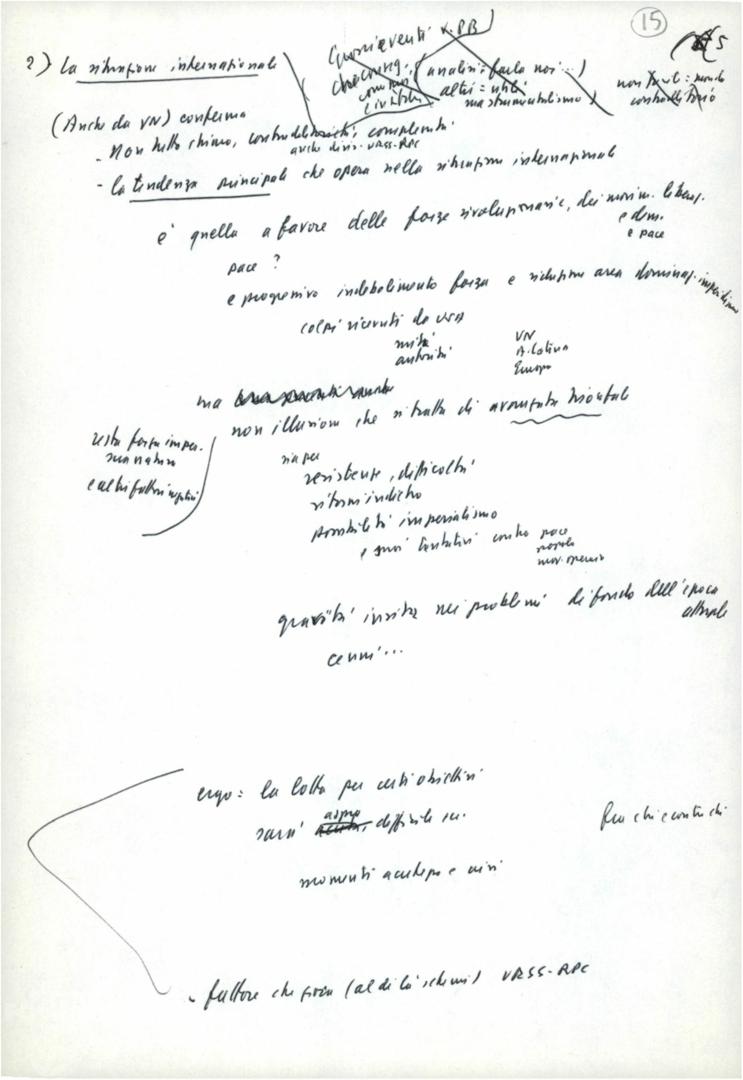 15
5
2) La situazione internazionale
(analisi: farla noi...)
altri = utili
ma strumentalismo)
contraddittorio
(Anche da VN) conferma
- Non tutto chiaro, contraddittorietà, complessità
anche divis. URSS-RPC
- la tendenza principale che opera nella situazione internazionale
è quella a favore delle forze rivoluzionarie, dei movim. liberaz.
e dem.
e pace
pace ?
e progressivo indebolimento forza e riduzione area dominaz. imperialismo
colpi ricevuti da USA
unità
autorità
VN
A. Latina
Europa
ma
non illusioni che si tratta di avanzata trionfale
resta forza imper.
sua natura
e altri fattori negativi
sia per
resistenze, difficoltà
ritorni indietro
possibilità imperialismo
e suoi tentativi contro pace
popoli
mov. operaio
gravità insita nei problemi di fondo dell'epoca
attuale
cenni...
ergo: la lotta per certi obiettivi
sarà aspra difficile ecc.
fra chi e contro chi
momenti acutezza e crisi
- fattore che pesa (al di là schemi) URSS-RPC